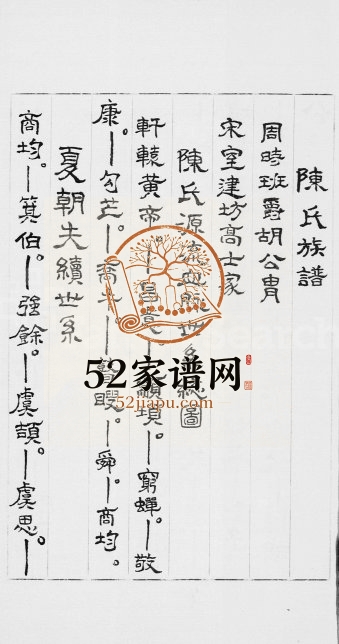 陳氏族譜
周時班爵胡公冑
宋室建坊高士家
陳氏源流血脈世系總圖
軒轅黃帝。—昌意。—顓頊。—窮蟬。—敬
康。—句芒。—喬牛。—瞽瞍。—舜。—商均。
夏朝夫續世系
商均。—箕伯。—強餘。—虞頡。—虞思。—
52家谱网
52jiapu.com